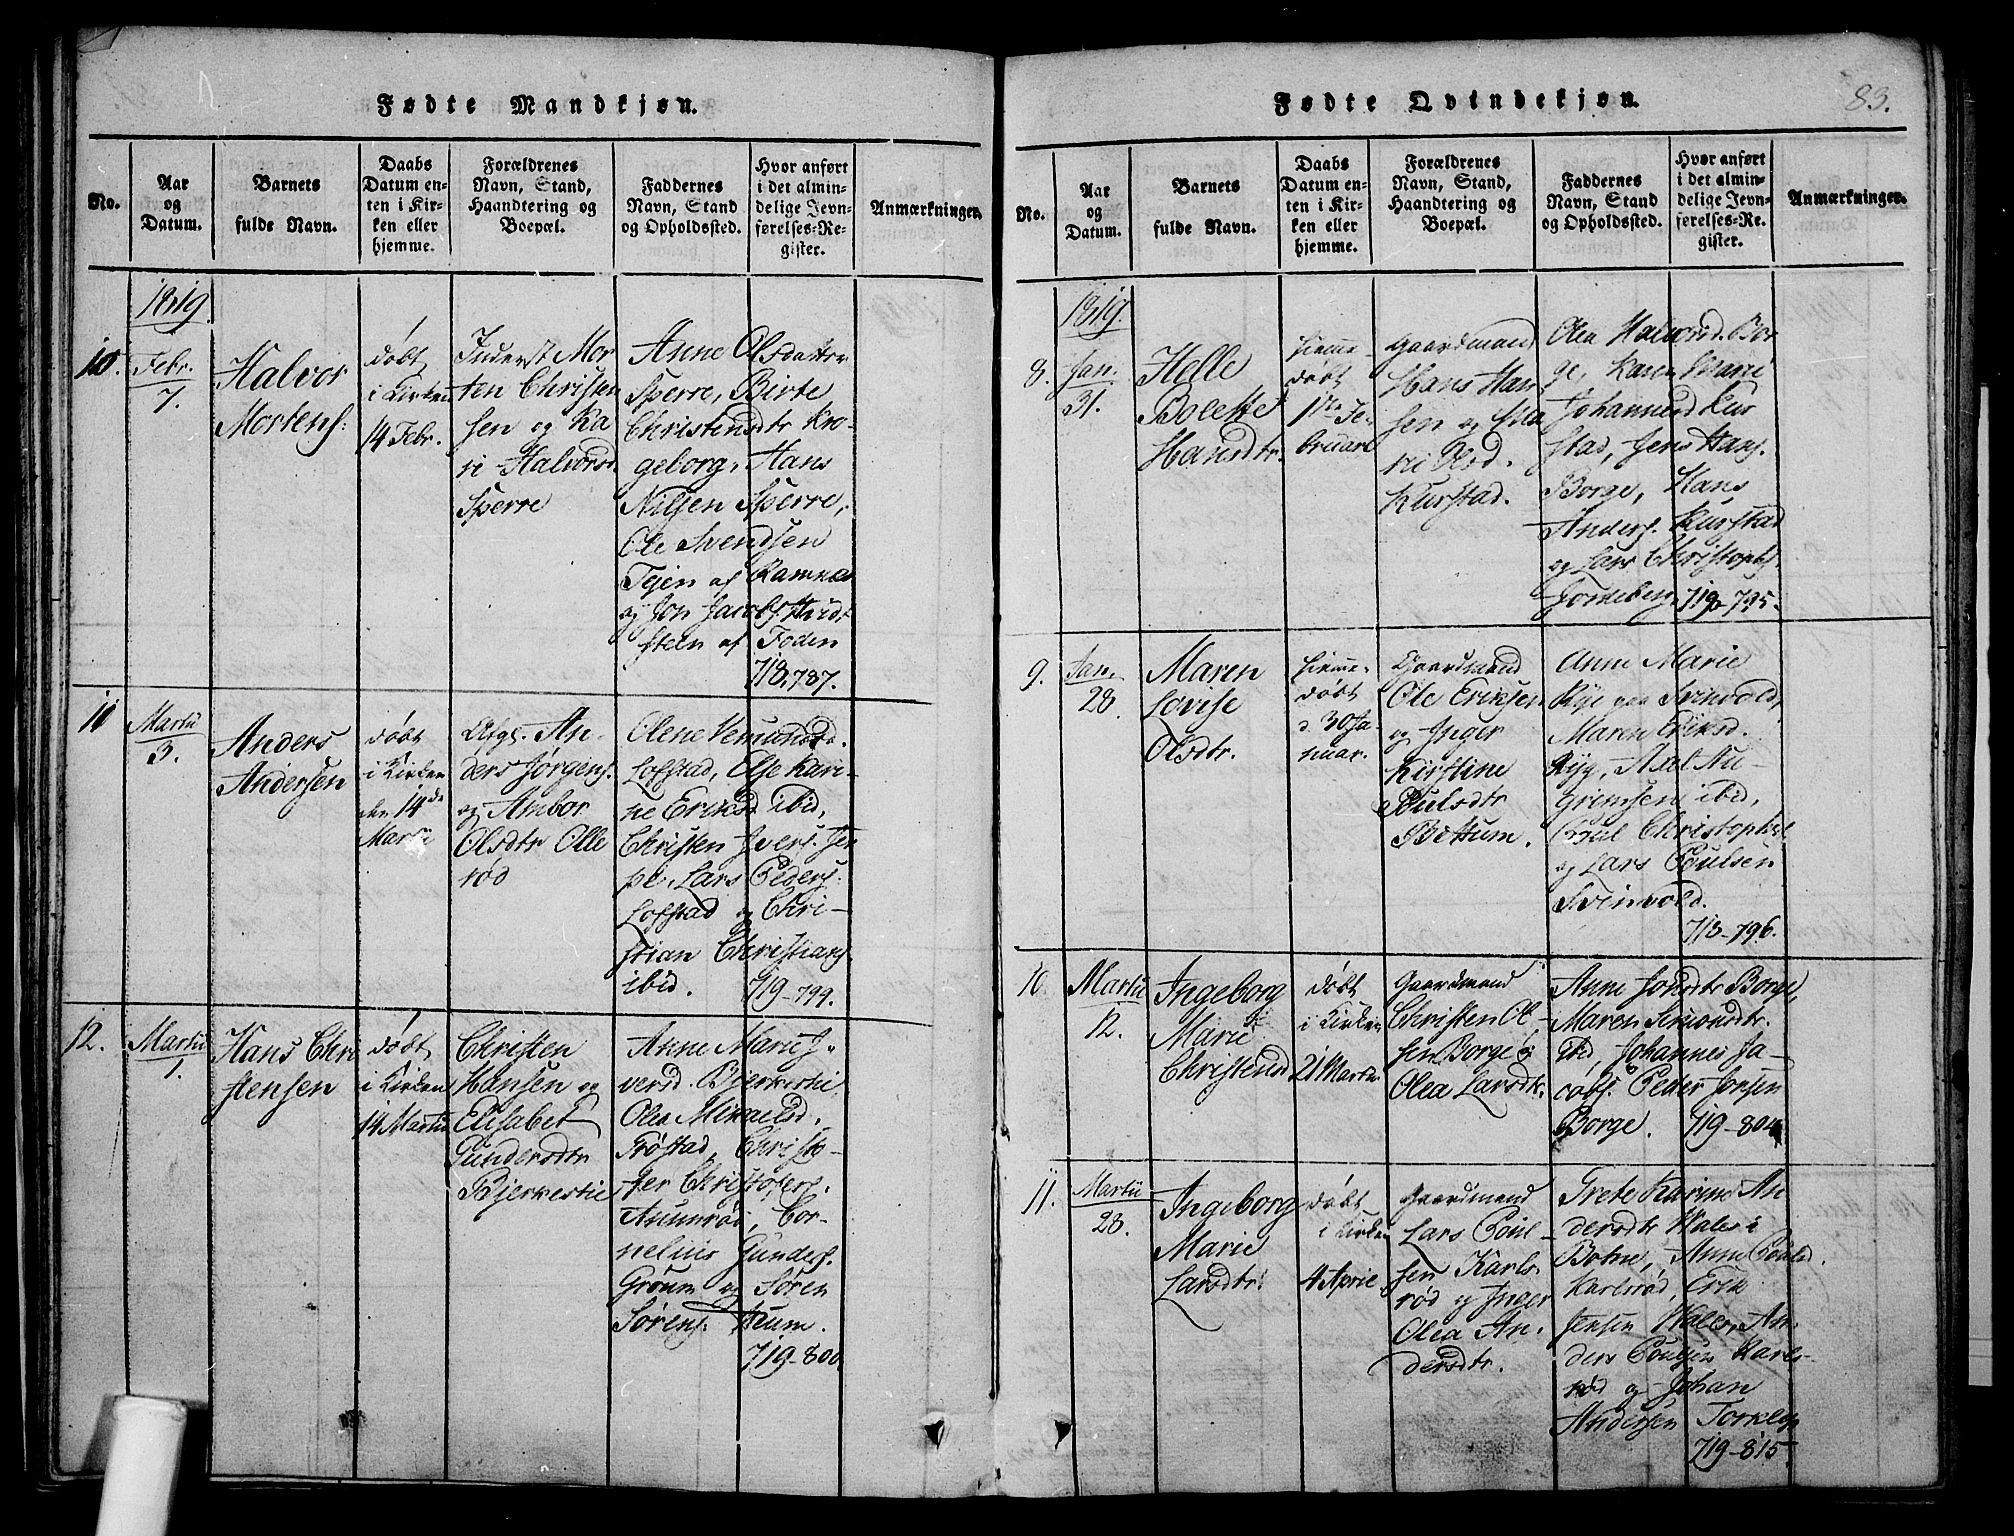 Fødte Mandkjøn.
No.
Aar
og
Datum.
Barnets
fulde Navn.
Daabs
Datum en-
ten i Kir-
ken eller
hjemme.
Forældrenes
Navn, Stand,
Haandtering og
Boepæl.
Faddernes
Navn, Stand
og Opholdssted.
Hvor anført
i det almin-
delige Jevn-
førelses-Re-
gister.
Anmærkninger.
1819.
10.
Febr.
7.
Halvor
Mortens:
døbt
i Kirken
14 Febr.
Inderst Mor
ten Christen
sen og Ka
ri Halvorsd.
Sperre
Anne Olsdatter
Sperre, Birte
Christensdtr Kro-
geborg, Hans
Nilsen Sperre,
Ole Svendsen
Tejen af Ramnæs
og Jon Jacobs. Hvidt
steen af Foden
718, 787.
11
Martii
3.
Anders
Andersen
døbt
i Kirken
den 14de
Martii
An-
ders Jørgens.
og Ambor
Olsdtr Olle
rød
Olene Vemundsd.
Lofstad, Else Kari-
ne Eriksd ibid,
Christen Ivers. Jer
pe, Lars Peders:
Lofstad og Chri-
stian Christians
ibid. 719-799.
12.
Martii
1.
Hans Chri
stensen
døbt
i Kirken
14 Martii
Christen
Hansen og
Elisabet
Gundersdtr
Bjerkestie
Anne Marie I-
versd. Bjerkestie,
Olea Mikaelsd.
Trøstad, Christo-
fer Christofers.
Aunnrød, Cor-
nelius Gunders.
Groum og Søren
Sørens. Aum.
719-800
Fødte Qvindekjøn.
83.
No.
Aar
og
Datum.
Barnets
fulde Navn.
Daabs
Datum en-
ten i Kir-
ken eller
hjemme.
Forældrenes
Navn, Stand,
Haandtering og
Boepæl.
Faddernes
Navn, Stand
og Opholdssted.
Hvor anført
i det almin-
delige Jevn-
førelses-Re-
gister.
Anmærkninger.
1819.
8.
Jan.
31.
Helle
Bolette
Hansdtr.
hiemme-
døbt
1ste Fe-
bruari
Gaardmand
Hans Han
sen og
Olsd.
Kurstad.
Olea Halvorsd. Bor
ge, Karen Marie
Johannesd Kur
stad, Jens Hans.
Borge, Hans
Anders. Kurstad
og Lars Christophs.
719-795.
9.
Jan.
28.
Maren
Lovise
Olsdtr.
hiemme-
døbt
d. 30 Ja-
nuar.
Gaardmand
Ole Eriksen
og Inger
Kirstine
Poulsdtr
Bettum.
Anne Marie
Rye paa Svinvold,
Maren Eriksd.
Ryg, Axel Au-
grimsen ibid,
Poul Christophs.
og Lars Poulsen
Svinvold.
718-796.
10
Martii
12.
Ingeborg
Marie
Christensd
døbt
i Kirken
21 Martii
Gaardmand
Christen Ol-
sen Borge og
Olea Larsdtr.
Anne Jonsdtr Borge,
Maren Simonsdtr.
ibid, Johannes Ja-
cobs. Peder Jonsen
Borge. 719-804
11.
Martii
28.
Ingeborg
Marie
Larsdtr:
døbt
i Kirken
4 April
Gaardmand
Lars Poul-
sen Karls-
rød og Inger
Olea An-
dersdtr.
Grete Karine An
dersdtr Wales i
Botne, Anne Poulsd.
Karlsrød, Erik
Jensen Wales, An-
ders Poulsen Karls-
rød og Johan
Andersen Torklep
719-815.